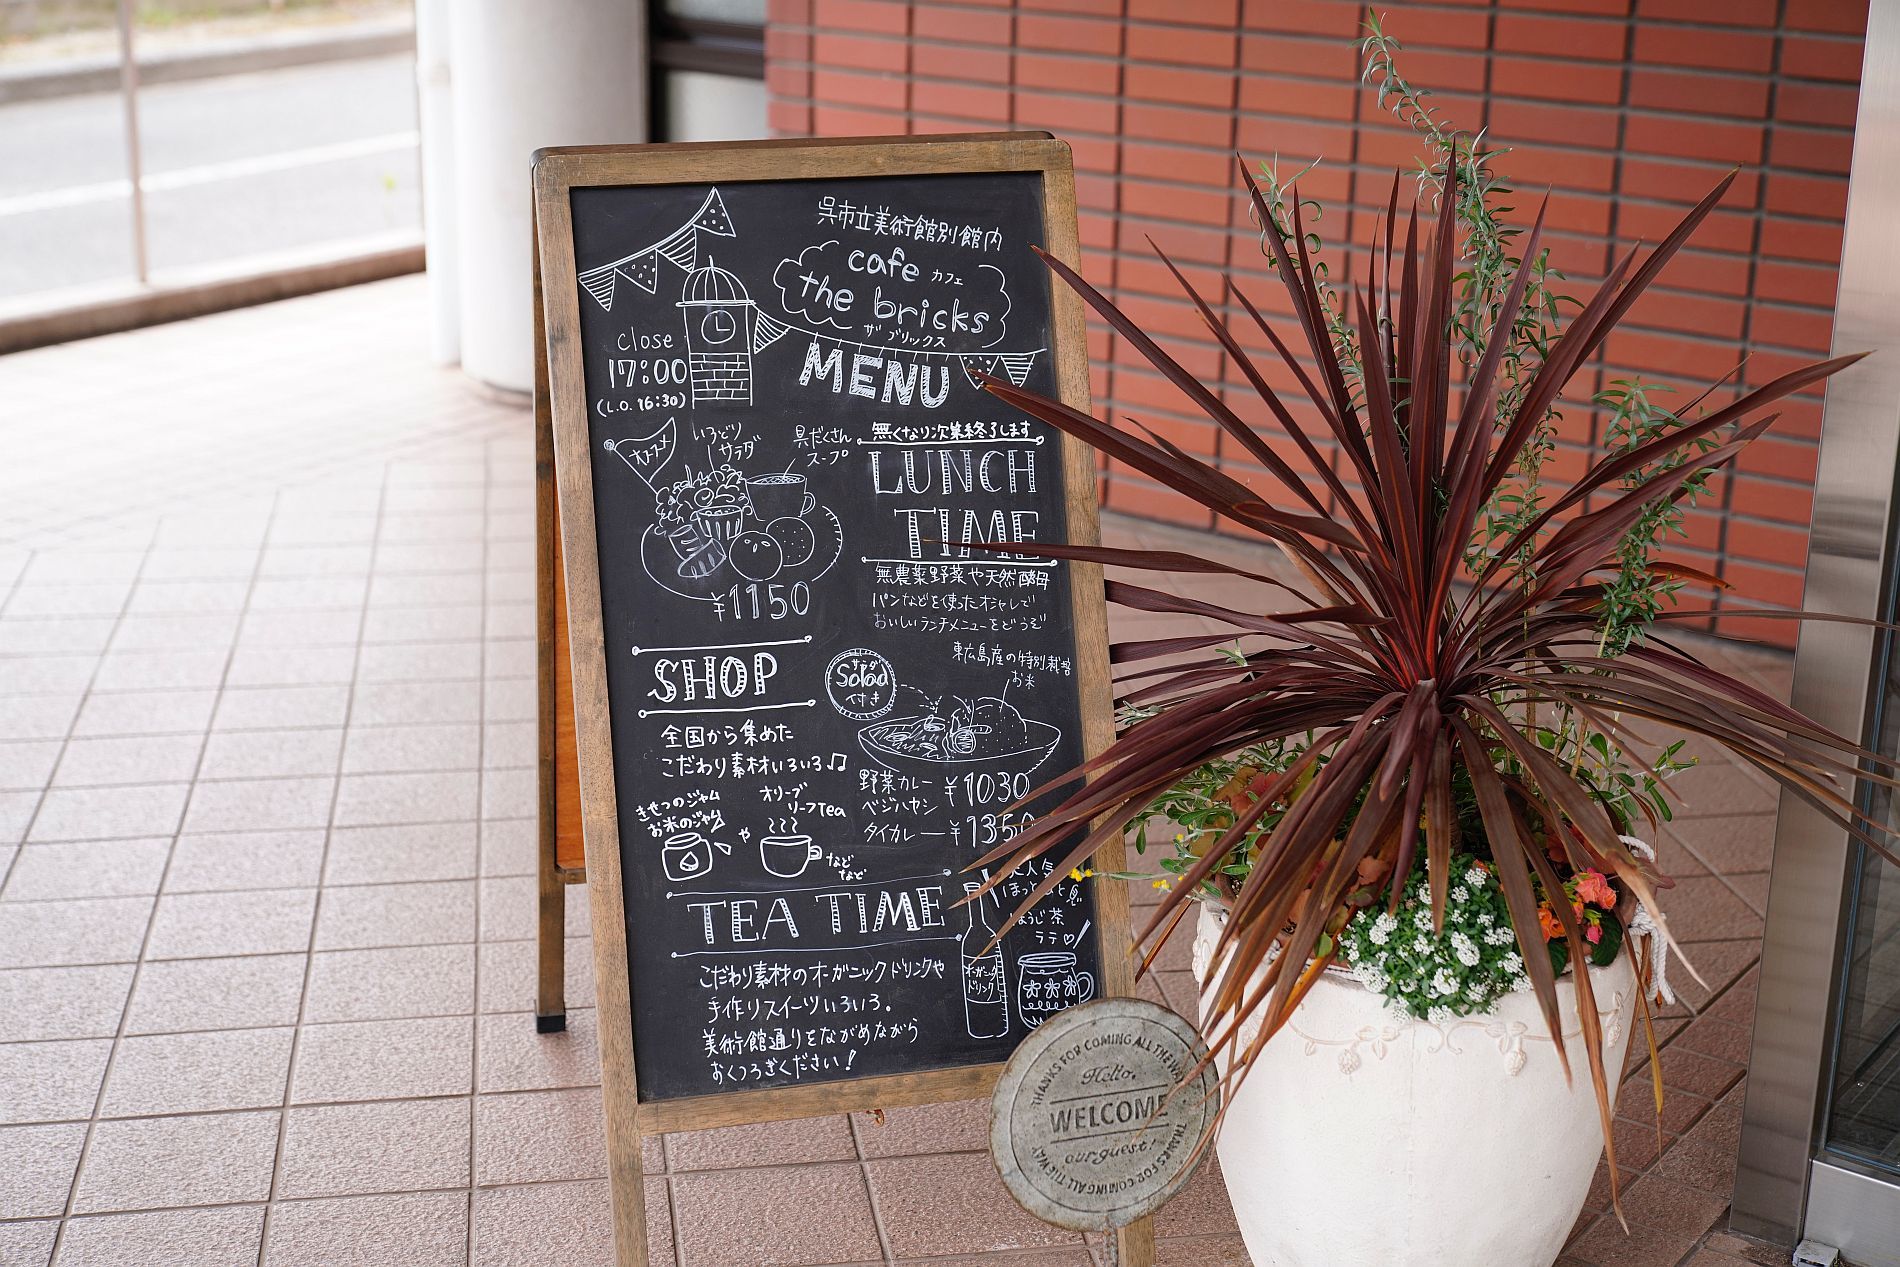 呉市立美術館別館内
cafe カフェ
the bricks
ザ ブリックス
MENU
close
17:00
(L.O. 16:30)
いろどり
サラダ
具だくさん
スープ
¥1150
無くなり次第終了します
LUNCH
TIME
無農薬野菜や天然酵母
パンなどを使ったオシャレで
おいしいランチメニューをどうぞ
SHOP
全国から集めた
こだわり素材いろいろ♫
きせつのジャム
お米のジャム
や
オリーブ
リーフtea
など
など
サラダ
Salad
付き
東広島産の特別栽培
お米
野菜カレー ¥1030
ベジハヤシ
タイカレー ¥1350
TEA TIME
こだわり素材のオーガニックドリンクや
手作りスイーツいろいろ。
美術館通りをながめながら
おくつろぎください!
オーガニック
ドリンク
大人気
ほうじ茶
ラテ♡
THANKS FOR COMING ALL THE WAY
Hello.
WELCOME
our guest.
THANKS FOR COMING ALL THE WAY